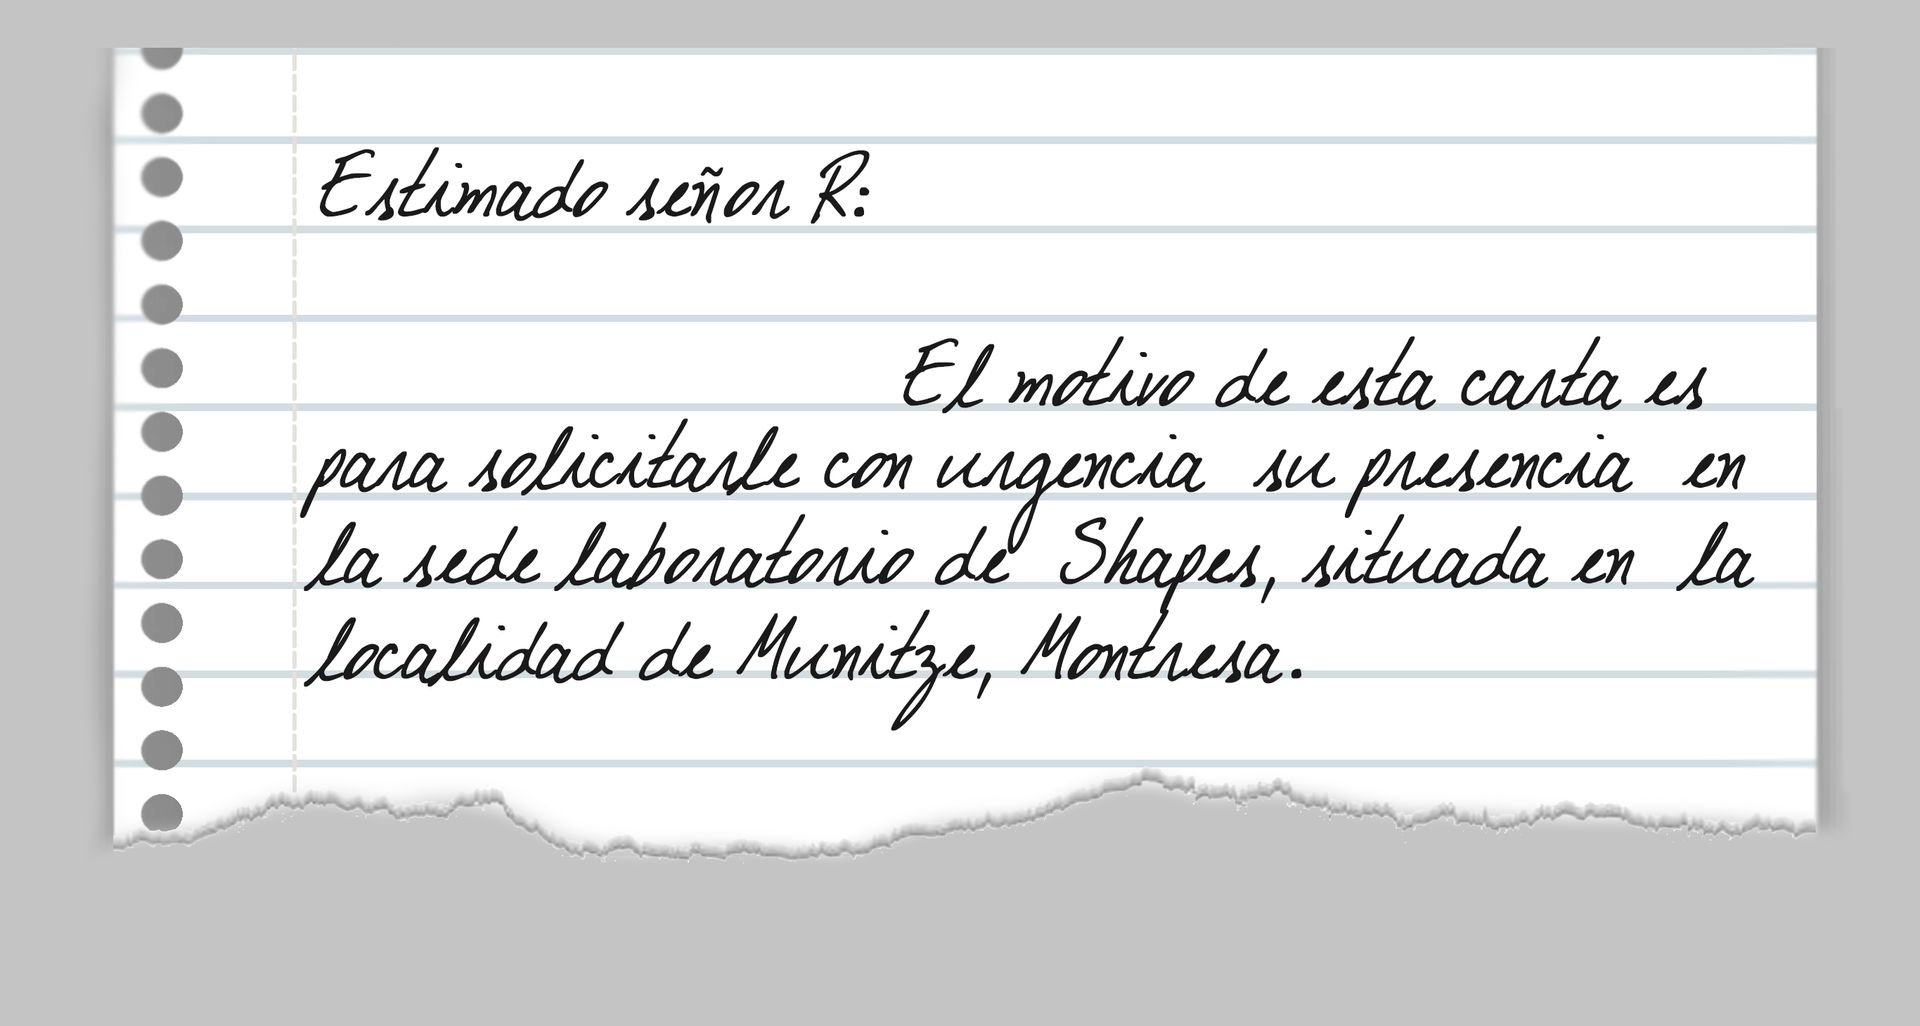 Estimado señor R:
El motivo de esta carta es
para solicitarle con urgencia su presencia en
la sede laboratorio de Shapes, situada en la
localidad de Munitze, Montresa.